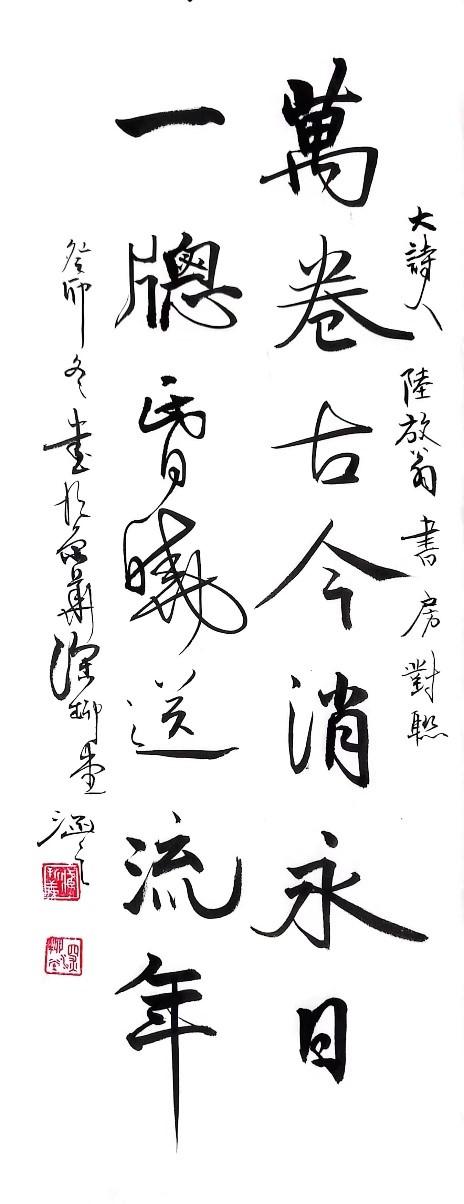 大詩人陸放翁書房對聯
萬卷古今消永日
一牕昏曉送流年
癸卯冬書於深柳堂